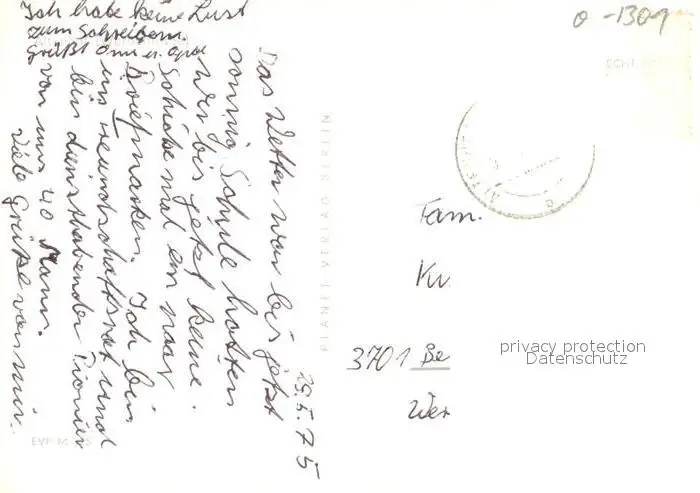 25.5.75
Das Wetter war bis jetzt
sonnig Schule hatten
wir bis jetzt keine.
Schicke mal ein paar
Briefmarken. Ich bin
im Freundschaftsrat und
bin diensthabender Pionier
von uns 40 Mann.
Viele Grüße von mir.
Ich habe keine Lust
zum Schreiben.
Grüßt Omi u. Opa
PLANET-VERLAG BERLIN
0-1309
Fam.
3701 Be
Wer
privacy protection
Datenschutz